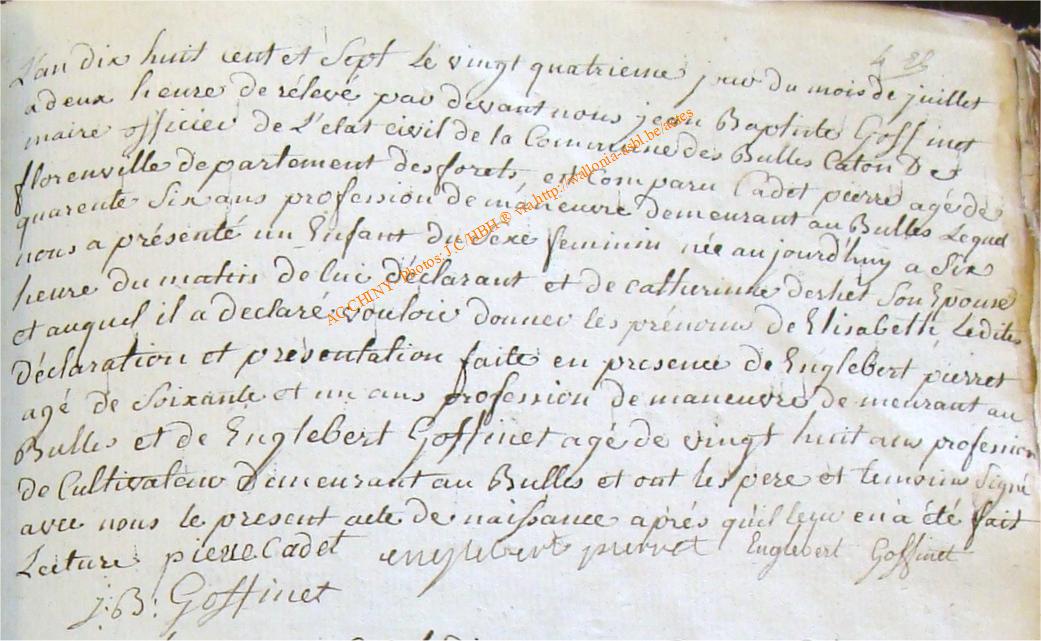 L'an dix huit cent et Sept le vingt quatrieme jour du mois de juillet
a deux heure de rélévé par devant nous jean Baptiste Goffinet
maire officier de L'etat civil de la Commune des Bulles Caton De
florenville departement desforets, est Comparu Cadet pierre agé de
quarente Six ans profession de maneuvre demeurant au Bulles Lequel
nous a présenté un Enfant du Sexe feminin née aujourd'huy a Six
heure du matin de lui déclarant et de catherinne dershet Son Epouse
et auquel il a declaré vouloir donner les prénoms de Elisabeth, Ledites
déclaration et présentation faite en presence de Englebert pierret
agé de Soixante et un ans profession de maneuvre demeurant au
Bulles et de Englebert Goffinet agé de vingt huit ans profession
de Cultivateur Demeurant au Bulles et ont les pere et temoins Signé
avec nous le present acte de naissance aprés qu'il leur en à été fait
Lecture pierre Cadet englebert pierret Englebert Goffinet
j: B: Goffinet
AGCHINY Photos: J.C/HBH ® via http://wallonia-asbl.be/actes